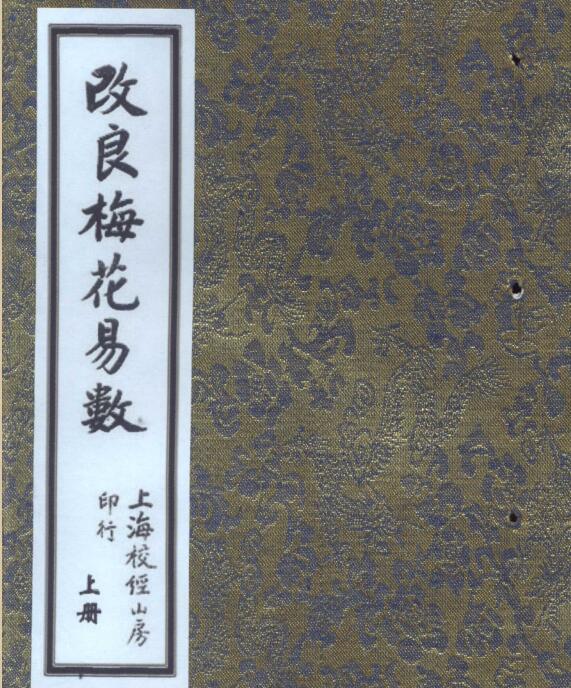 改良梅花易數
上海校經山房
印行
上册